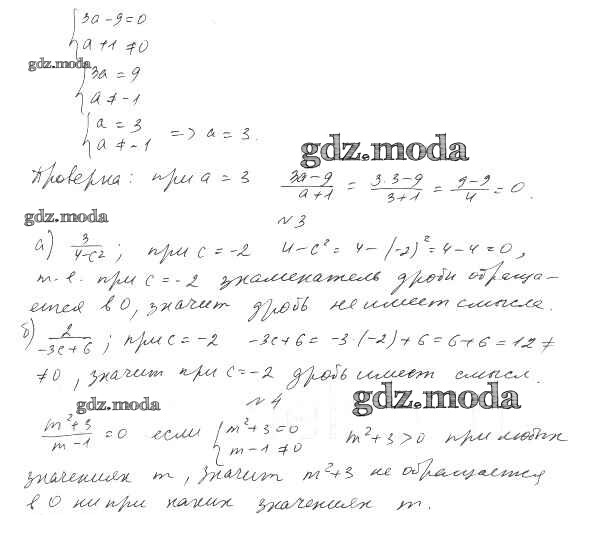 { 3a - 9 = 0
a + 1 ≠ 0
gdz.moda
{ 3a = 9
a ≠ -1
{ a = 3
a ≠ -1 => a = 3.
gdz.moda
Проверка: при a = 3 (3a-9)/(a+1) = (3·3-9)/(3+1) = (9-9)/4 = 0.
gdz.moda
№3
а) 3/(4-c²); при c = -2 4-c² = 4-(-2)² = 4-4 = 0,
т.е. при c = -2 знаменатель дроби обраща-
ется в 0, значит дробь не имеет смысла.
б) 2/(-3c+6); при c = -2 -3c+6 = -3·(-2)+6 = 6+6 = 12 ≠
≠ 0, значит при c = -2 дробь имеет смысл.
gdz.moda №4 gdz.moda
(m²+3)/(m-1) = 0 если { m²+3 = 0
m-1 ≠ 0 m²+3>0 при любых
значениях m, значит m²+3 не обращается
в 0 ни при каких значениях m.